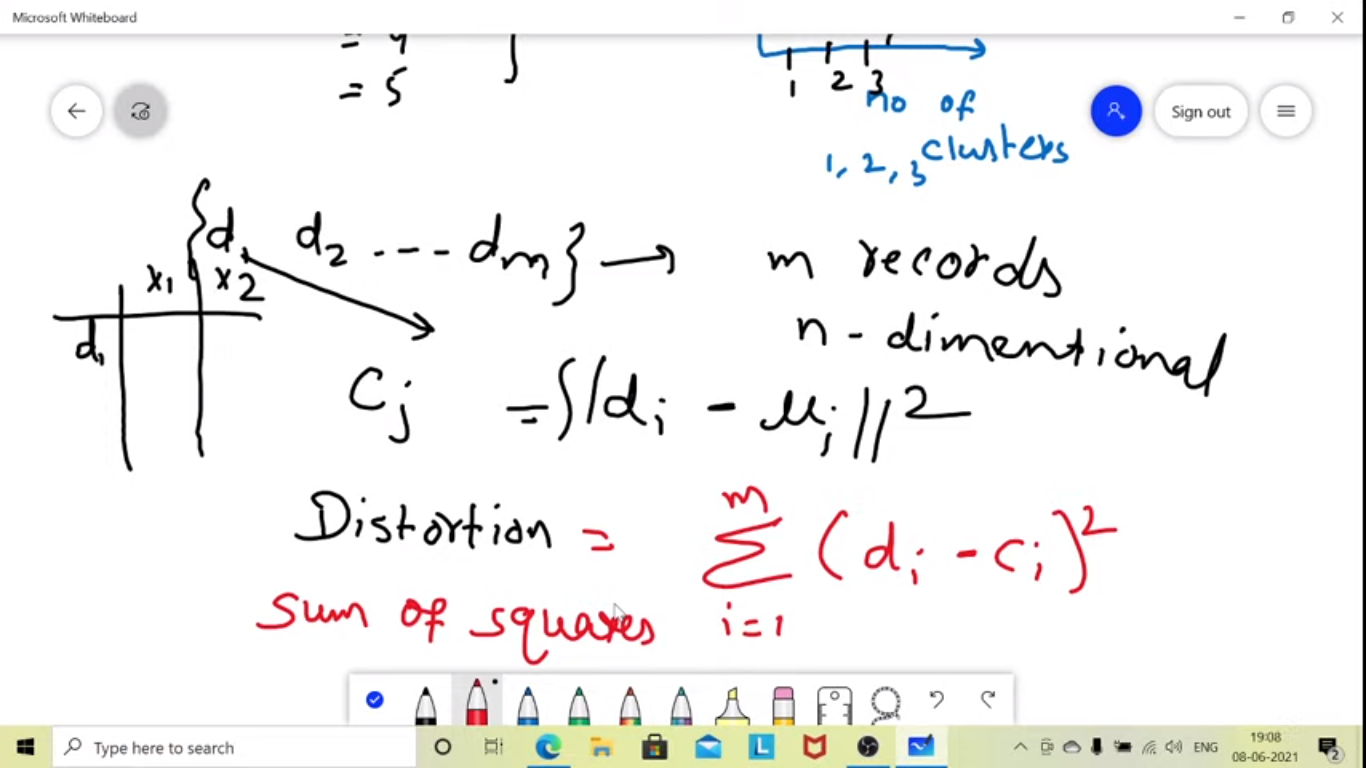 Microsoft Whiteboard
= 4
= 5
1 2 3
no of
clusters
1, 2, 3
Sign out
{d1 d2 ---- dm} → m records
x1 x2
n - dimentional
d1
Cj = {||di - μj||²
Distortion = m Σ i=1 (di - ci)²
Sum of squares
Type here to search
ENG
19:08
08-06-2021
2